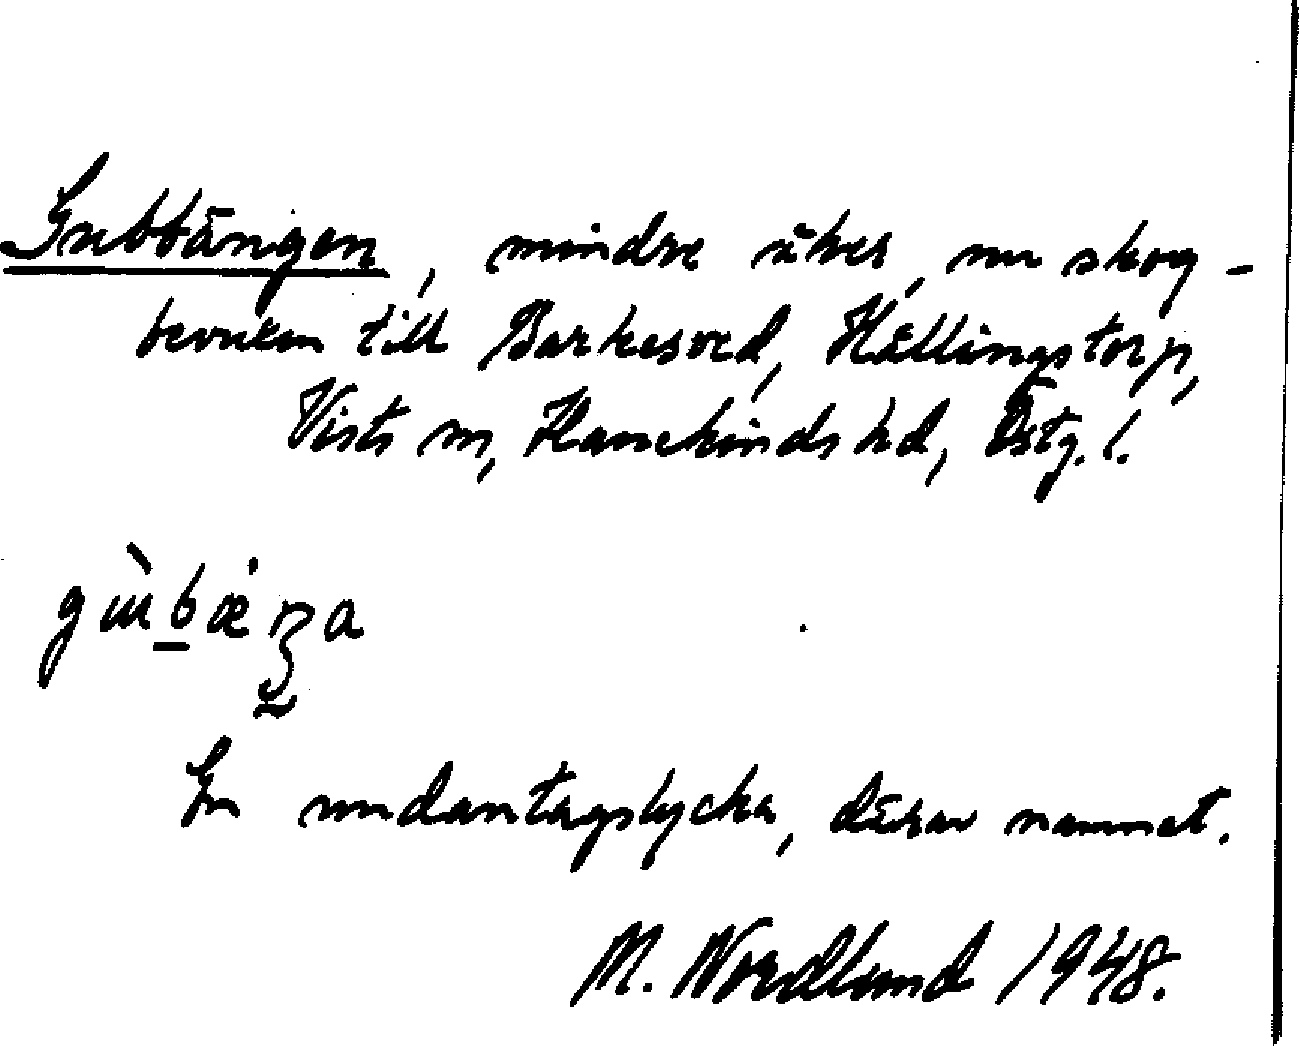 Gubbängen, mindre åker, nu skog-
bevuxen till Barkesved, Hällingstorp,
Vists sn, Hanekinds hd, Östg. l.
gɯ̀bæ̇ŋa
En undantagslycka, därav namnet.
M. Nordlund 1948.